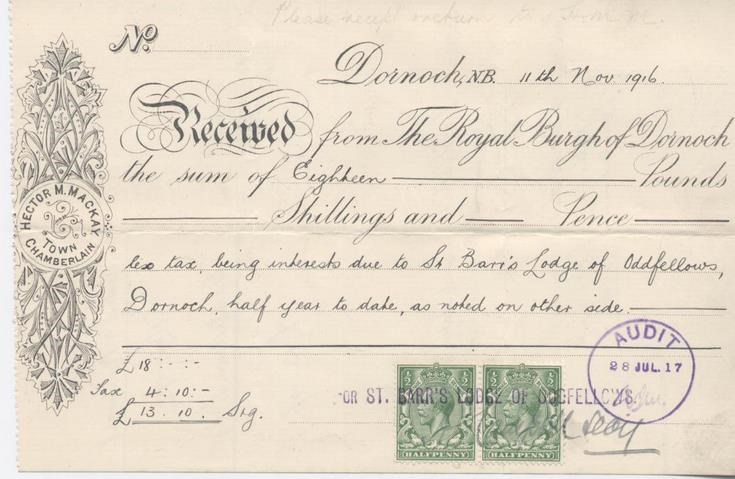 Please receipt & return to
No.
Dornoch, N.B. 11th Nov 1916.
Received from The Royal Burgh of Dornoch
the sum of Eighteen Pounds
Shillings and Pence
less tax, being interests due to St Barr's Lodge of Oddfellows,
Dornoch, half year to date, as noted on other side.
HECTOR M. MACKAY
TOWN
CHAMBERLAIN
£18:-:-
Tax 4:10:-
£13.10. Stg.
FOR ST. BARR'S LODGE OF ODDFELLOWS.
½ ½
½ ½
HALFPENNY HALFPENNY
AUDIT
28 JUL. 17